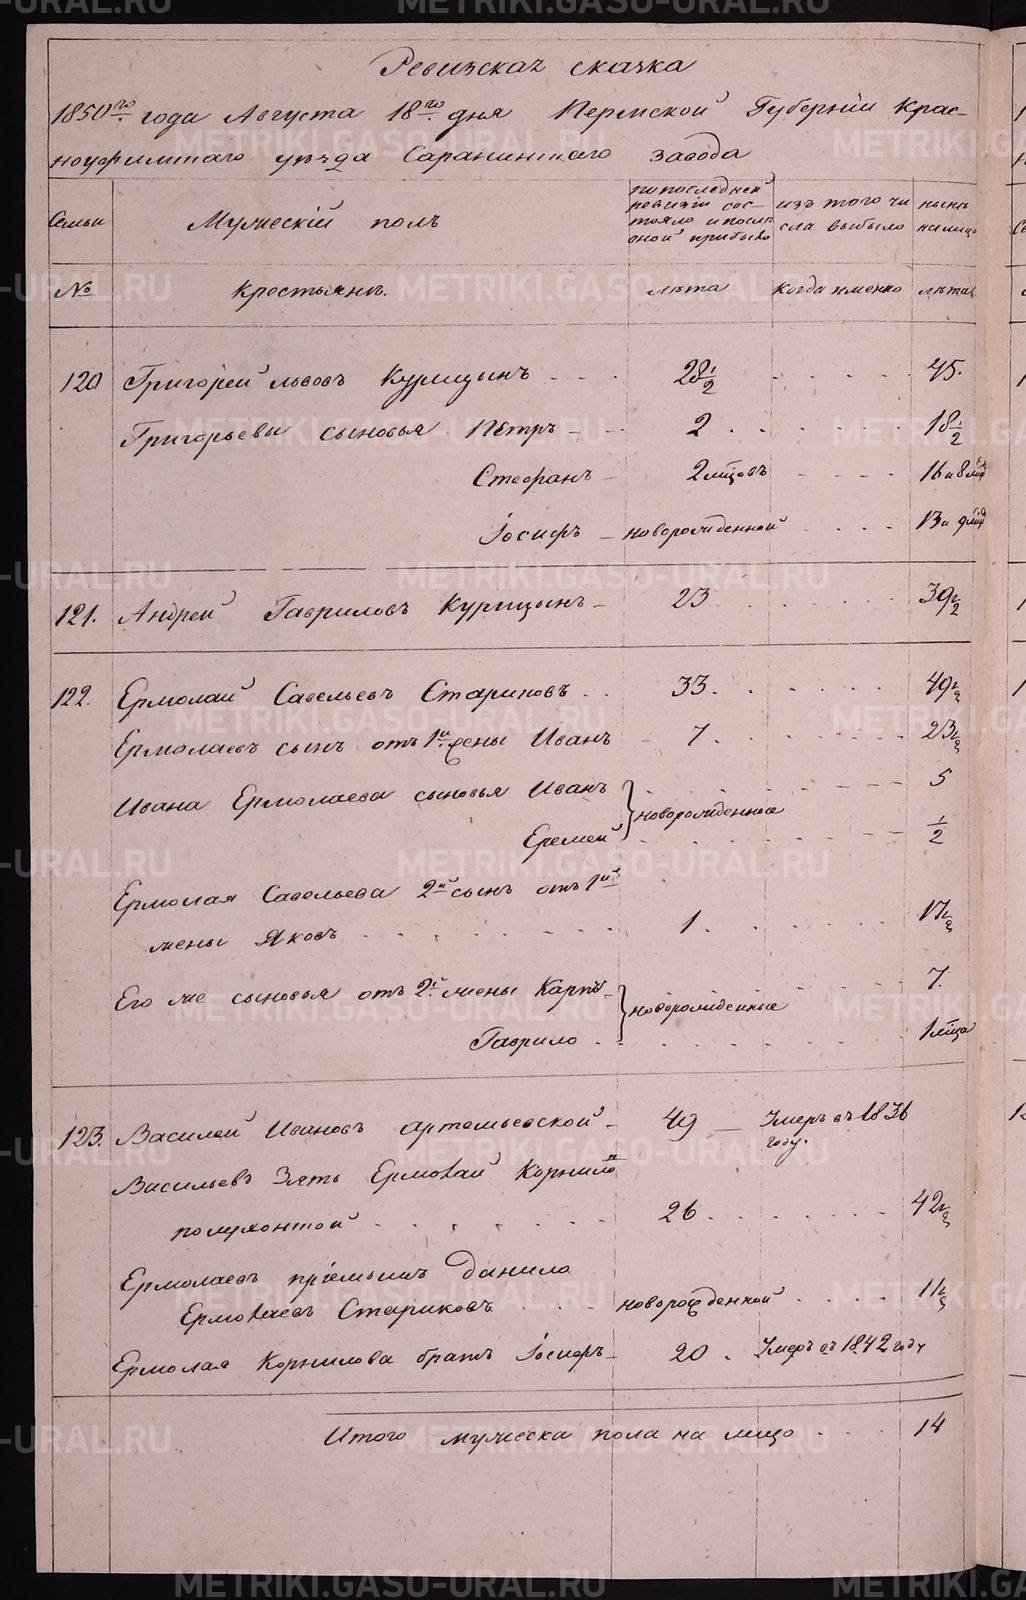 Ревизская сказка
1850го года Августа 18го дня Пермской Губерніи Крас-
ноуфимскаго уѣзда Саранинскаго завода
Семьи
Мужескій полъ
по последней ревизіи состояло и после оной прибыло
изъ того числа выбыло
нынѣ налицо
№
Крестьянъ.
лѣта
Когда именно
лѣта
120 Григорей Львовъ Курицынъ 28 1/2 45.
Григорьевы сыновья Петръ 2 18 1/2
Стефанъ 2 мцовъ 16 и 8 мцовъ
Іосифъ новорожденной 13 и 9 мцовъ
121. Андрей Гавриловъ Курицынъ 23 39 1/2
122. Ермолай Савельевъ Стариковъ 33. 49 1/2
Ермолаевъ сынъ отъ 1й жены Иванъ 7. 23 1/2
Ивана Ермолаева сыновья Иванъ 5
новорожденные
Еремей 1/2
Ермолая Савельева 2й сынъ отъ 1й
жены Яковъ 1. 17 1/2
Его же сыновья отъ 2й жены Карпъ 7.
новорожденные
Гаврило 1 мца
123. Василей Ивановъ Артемьевской 49 Умеръ въ 1836
году.
Васильевъ Зять Ермолай Корнило
полухонтой 26 42 1/2
Ермолаевъ пріемышъ Данило
Ермолаевъ Стариковъ новорожденной 11 1/2
Ермолая Корнилова братъ Іосифъ 20 Умеръ въ 1842 году
Итого мужеска пола на лицо 14
METRIKI.GASO-URAL.RU